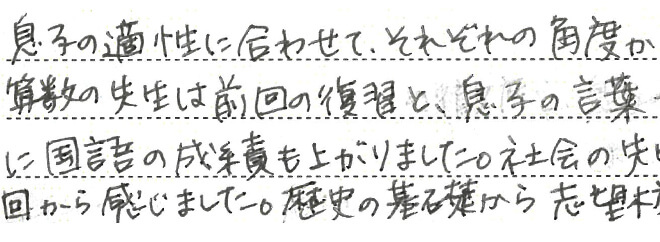 息子の適性に合わせて、それぞれの角度か
算数の先生は前回の復習と、息子の言葉
に国語の成績も上がりました。社会の先
回から感じました。歴史の基礎から志望校